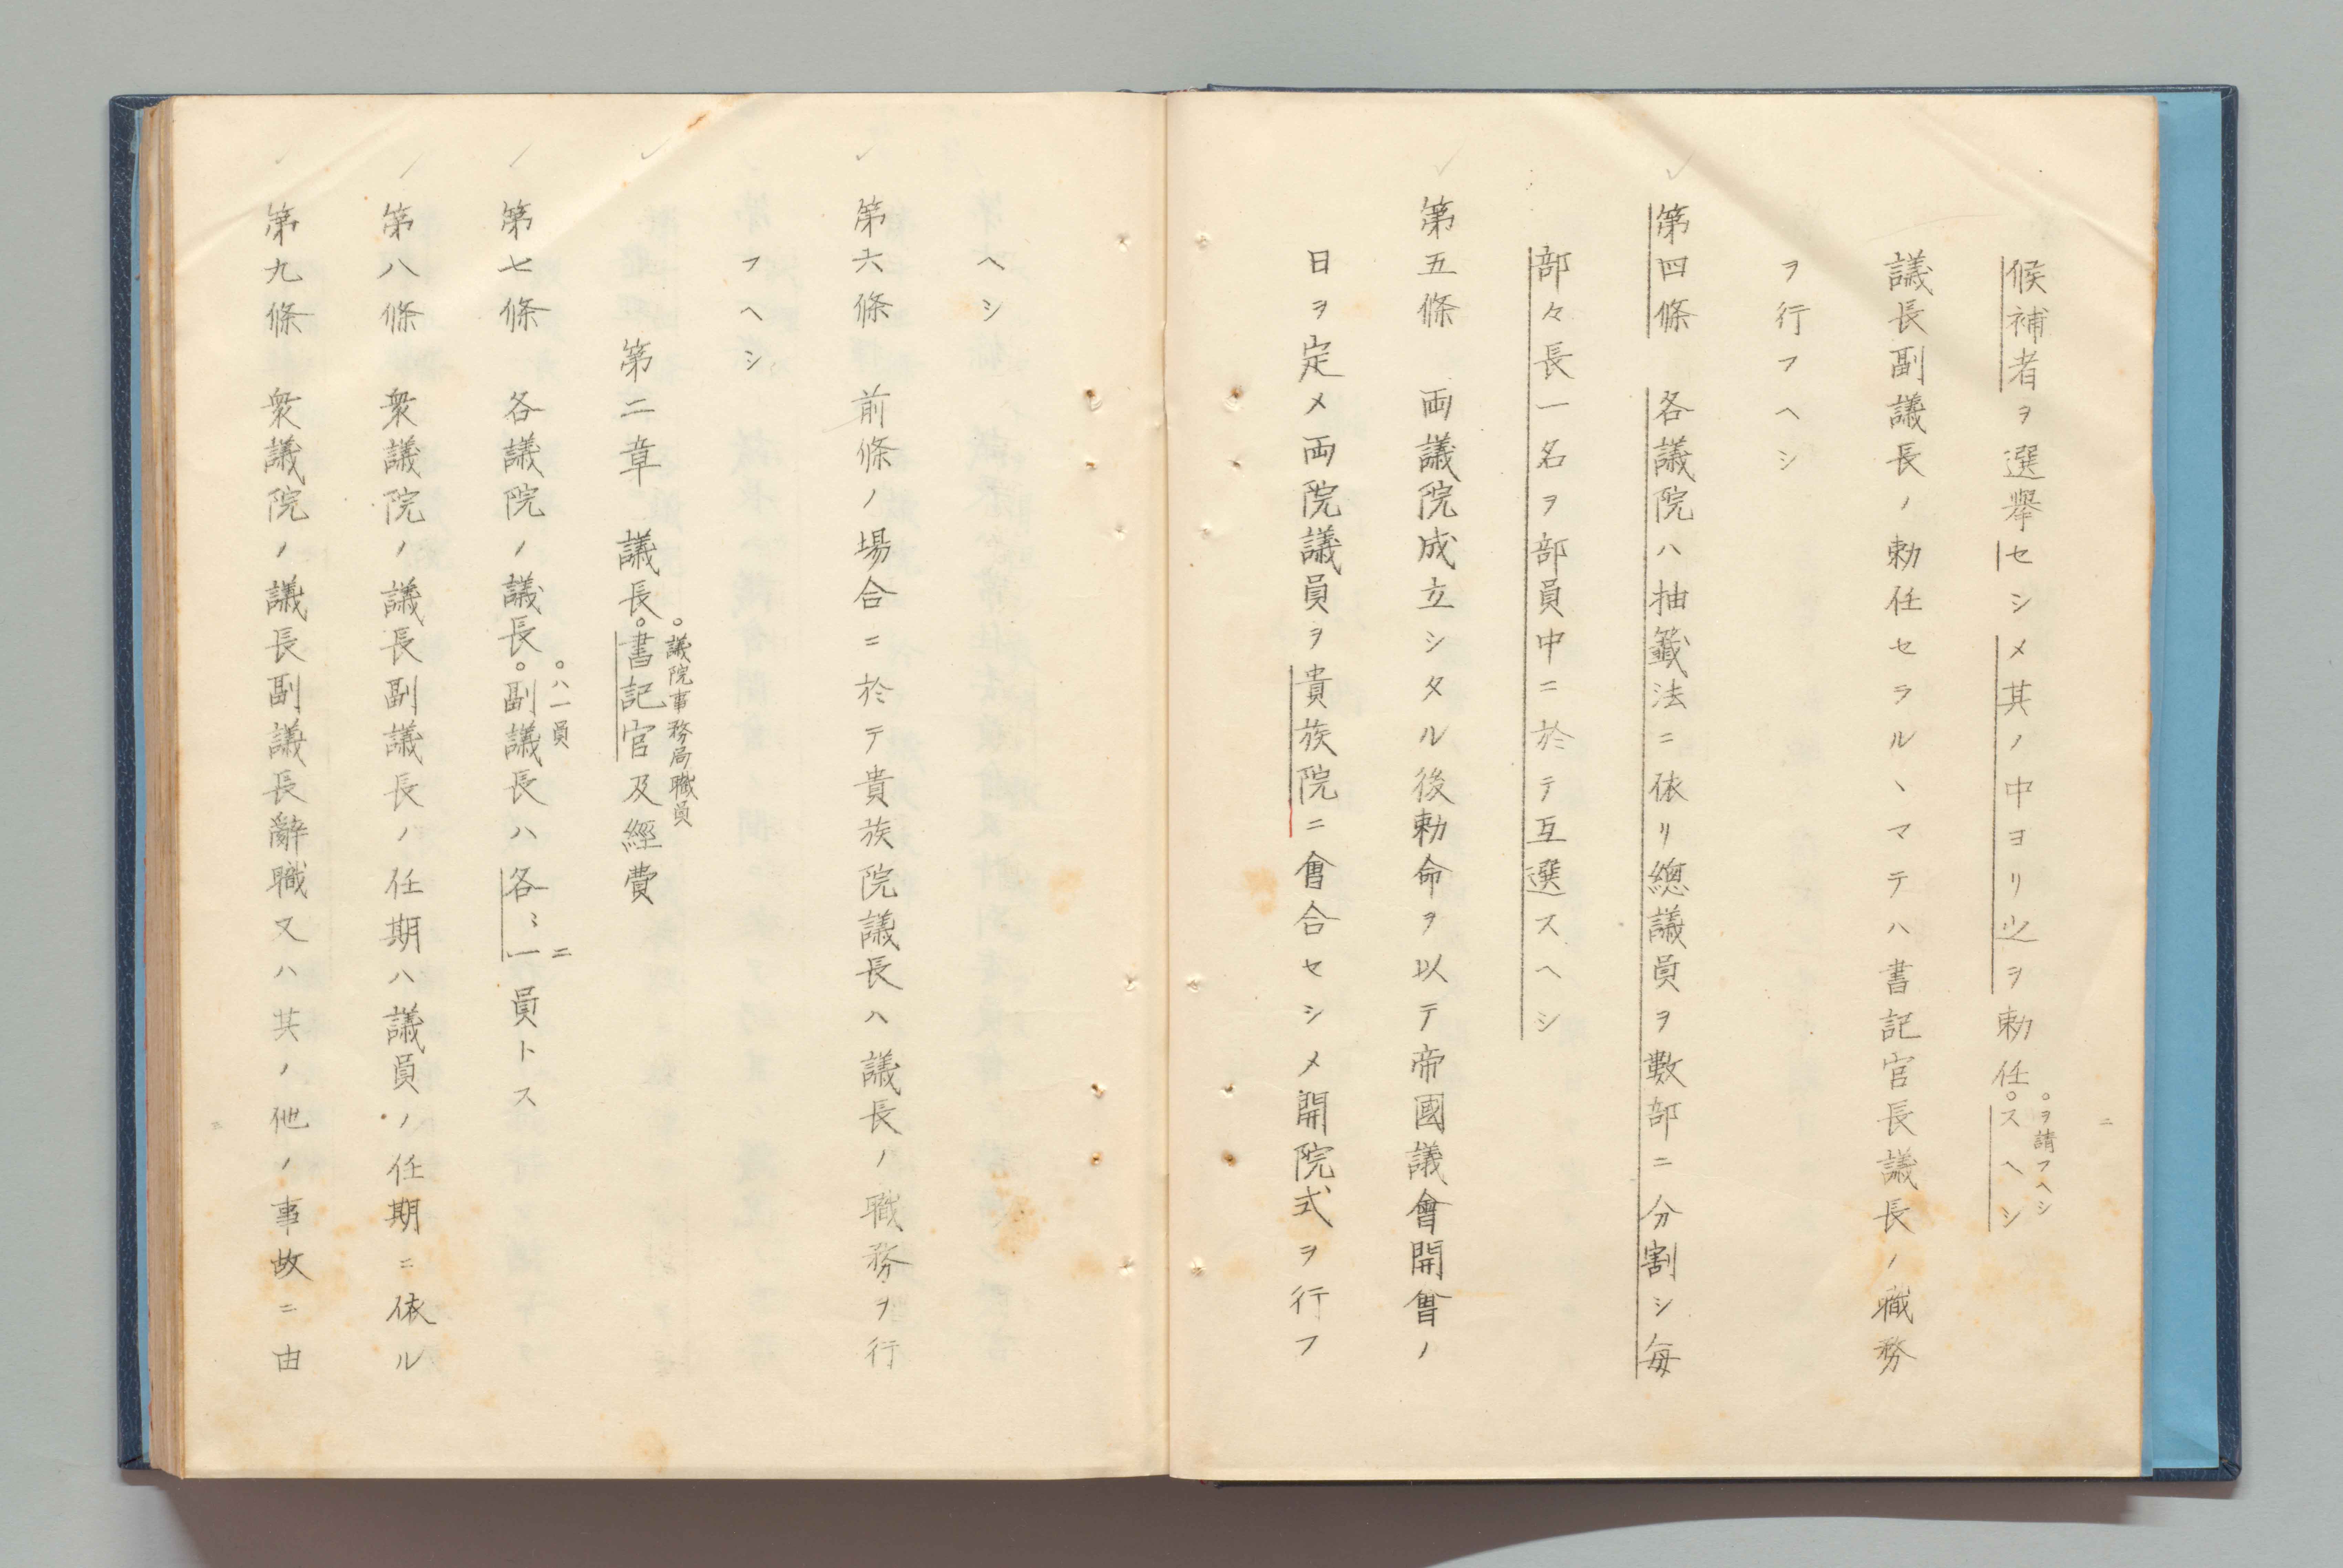 二
候補者ヲ選擧セシメ其ノ中ヨリ之ヲ勅任。スヘシ
。ヲ請フヘシ
議長副議長ノ勅任セラルヽマテハ書記官長議長ノ職務
ヲ行フヘシ
第四條 各議院ハ抽籤法ニ依リ總議員ヲ數部ニ分割シ毎
部々長一名ヲ部員中ニ於テ互選スヘシ
第五條 両議院成立シタル後勅命ヲ以テ帝國議會開會ノ
日ヲ定メ両院議員ヲ貴族院ニ會合セシメ開院式ヲ行フ
ヘシ
第六條 前條ノ場合ニ於テ貴族院議長ハ議長ノ職務ヲ行
フヘシ
。議院事務局職員
第二章 議長。書記官及經費
。ハ一員
第七條 各議院ノ議長。副議長ハ各〻一員トス
ニ
第八條 衆議院ノ議長副議長ノ任期ハ議員ノ任期ニ依ル
第九條 衆議院ノ議長副議長辭職又ハ其ノ他ノ事故ニ由